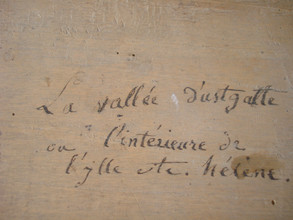 La vallée d'ustgatte
ou l'intérieure de
l'ylle Ste. Hélène.